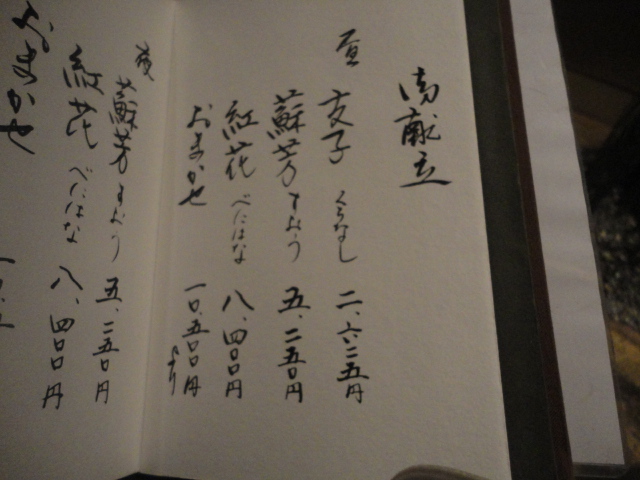 御献立
昼
支子 くちなし 二、六二五円
蘇芳 すおう 五、二五〇円
紅花 べにはな 八、四〇〇円
おまかせ 一〇、五〇〇円より
夜
蘇芳 すおう 五、二五〇円
紅花 べにはな 八、四〇〇円
おまかせ